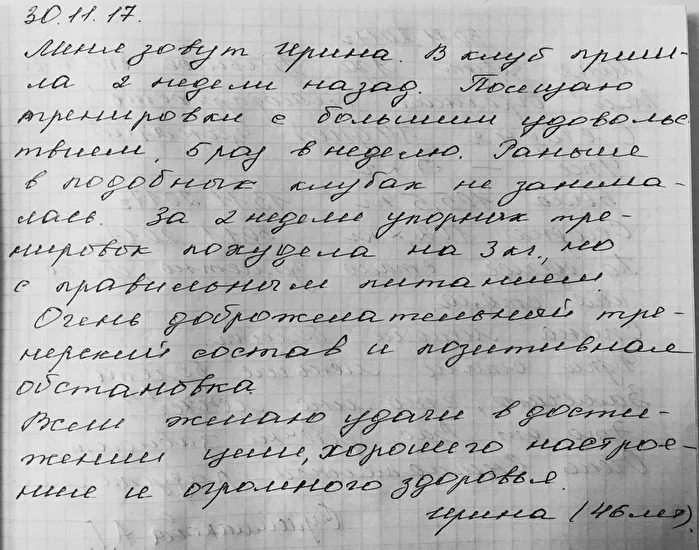 30.11.17.
Меня зовут Ирина. В клуб приш-
ла 2 недели назад. Посещаю
тренировки с большим удовольс
твием, 5 раз в неделю. Раньше
в подобных клубах не занима-
лась. За 2 недели упорных тре-
нировок похудела на 3 кг., но
с правильным питанием.
Очень доброжелательный тре-
нерский состав и позитивная
обстановка.
Всем желаю удачи в дости-
жении цели, хорошего настрое-
ние и огромного здоровья.
Ирина (46 лет).